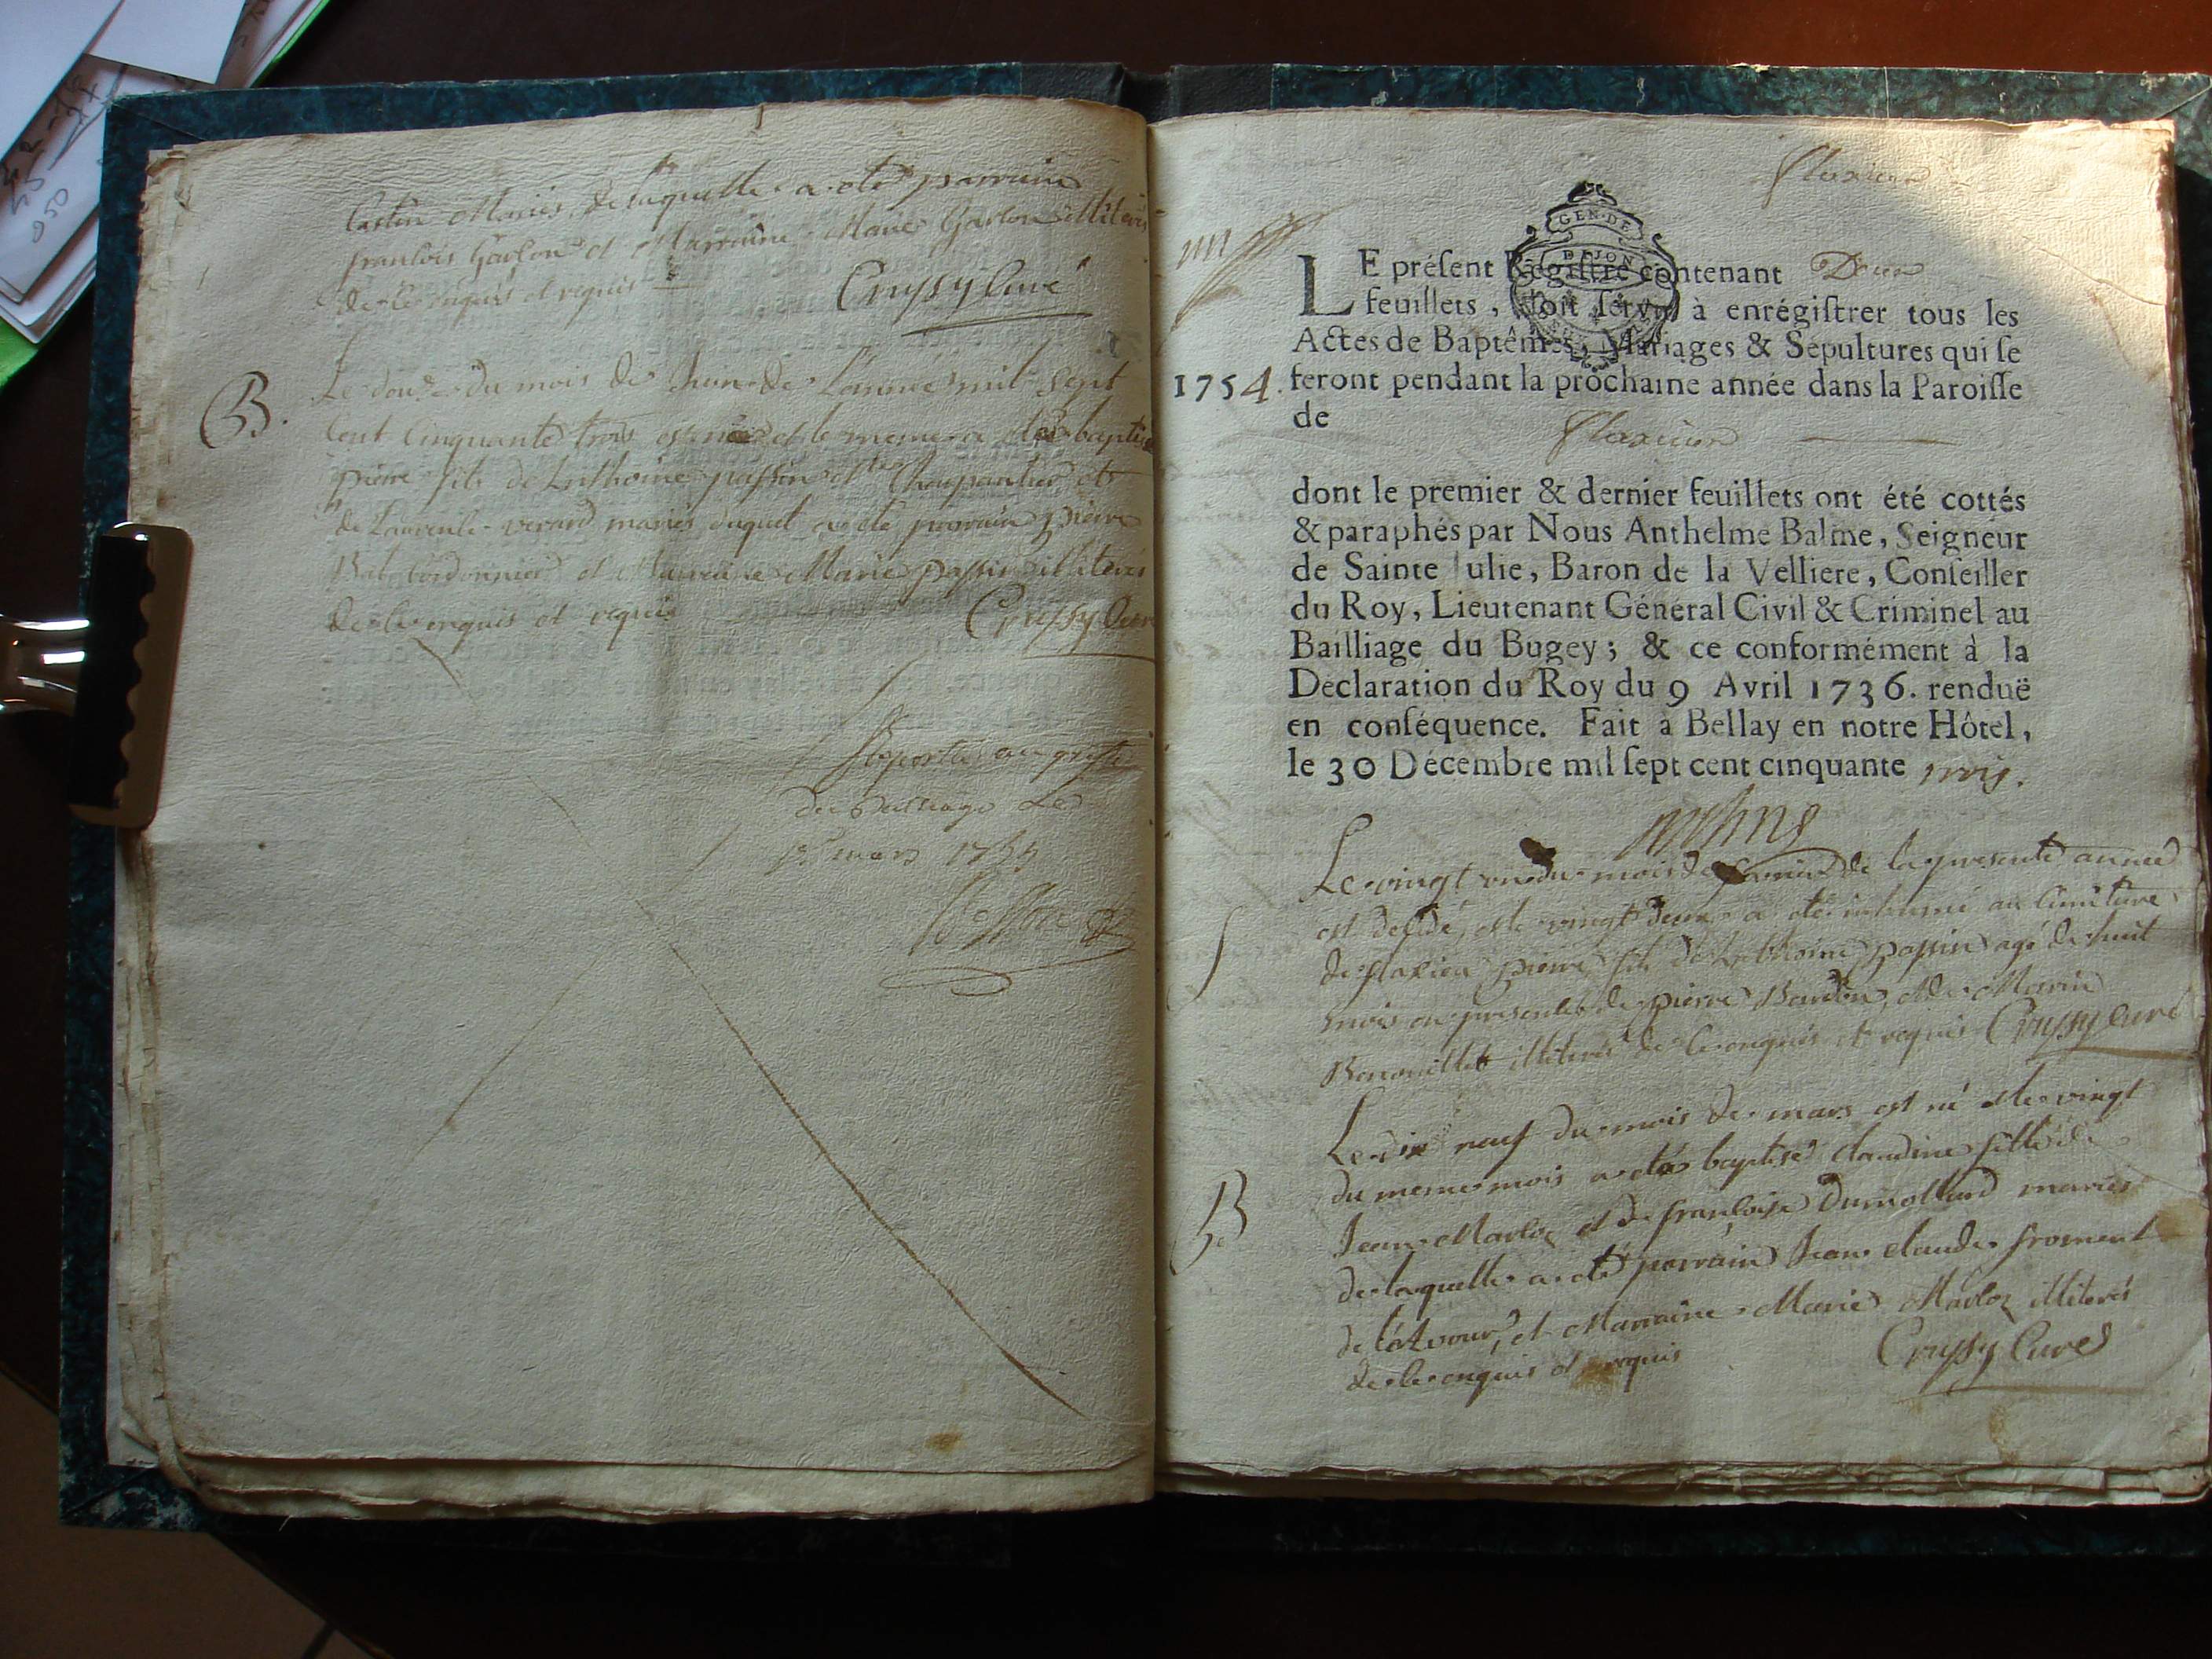 Maries, de laquelle a été parrain
françois Garlon et Marraine Marie Garlon illiterés
de ce enquis et requis
Crussy Curé
B.
Le douze du mois de Juin de l'année mil sept
cent cinquante trois est né et le meme a été baptisé
pierre fils de Anthoine passin et
de Laurence verard mariés duquel a été parrain pierre
cordonnier et Marraine Marie passin illiterés
de ce enquis et requis
Crussy Curé
Raporté au greffe
du Bailliage Le
mars 17
flaxieu
GEN·DE
DIJON
un
LE préſent Regiſtre contenant Deux
feuillets, ſoit ſervy à enrégiſtrer tous les
Actes de Baptêmes, Mariages & Sépultures qui ſe
1754. feront pendant la prochaine année dans la Paroiſſe
de flaxieu
dont le premier & dernier feuillets ont été cottés
& paraphés par Nous Anthelme Balme, Seigneur
de Sainte Julie, Baron de la Velliere, Conſeiller
du Roy, Lieutenant Général Civil & Criminel au
Bailliage du Bugey; & ce conformément à la
Declaration du Roy du 9 Avril 1736. renduë
en conſéquence. Fait à Bellay en notre Hôtel,
le 30 Décembre mil ſept cent cinquante trois.
Le vingt un du mois de de la presente année
S
est decedé, et le vingt deux a été inhumé au cimitiere
de flaxieu pierre fils de Anthoine passin agé de huit
mois en presence de pierre Bardon, et de
illiterés de ce enquis et requis Crussy Curé
B
Le dix neuf du mois de mars est né et le vingt
du meme mois a été baptisé claudine fille de
Jean Marloz et de françoise Dumollard mariés
de laquelle a été parrain Jean claude froment
de et Marraine Marie Marloz illiterés
de ce enquis et requis
Crussy Curé